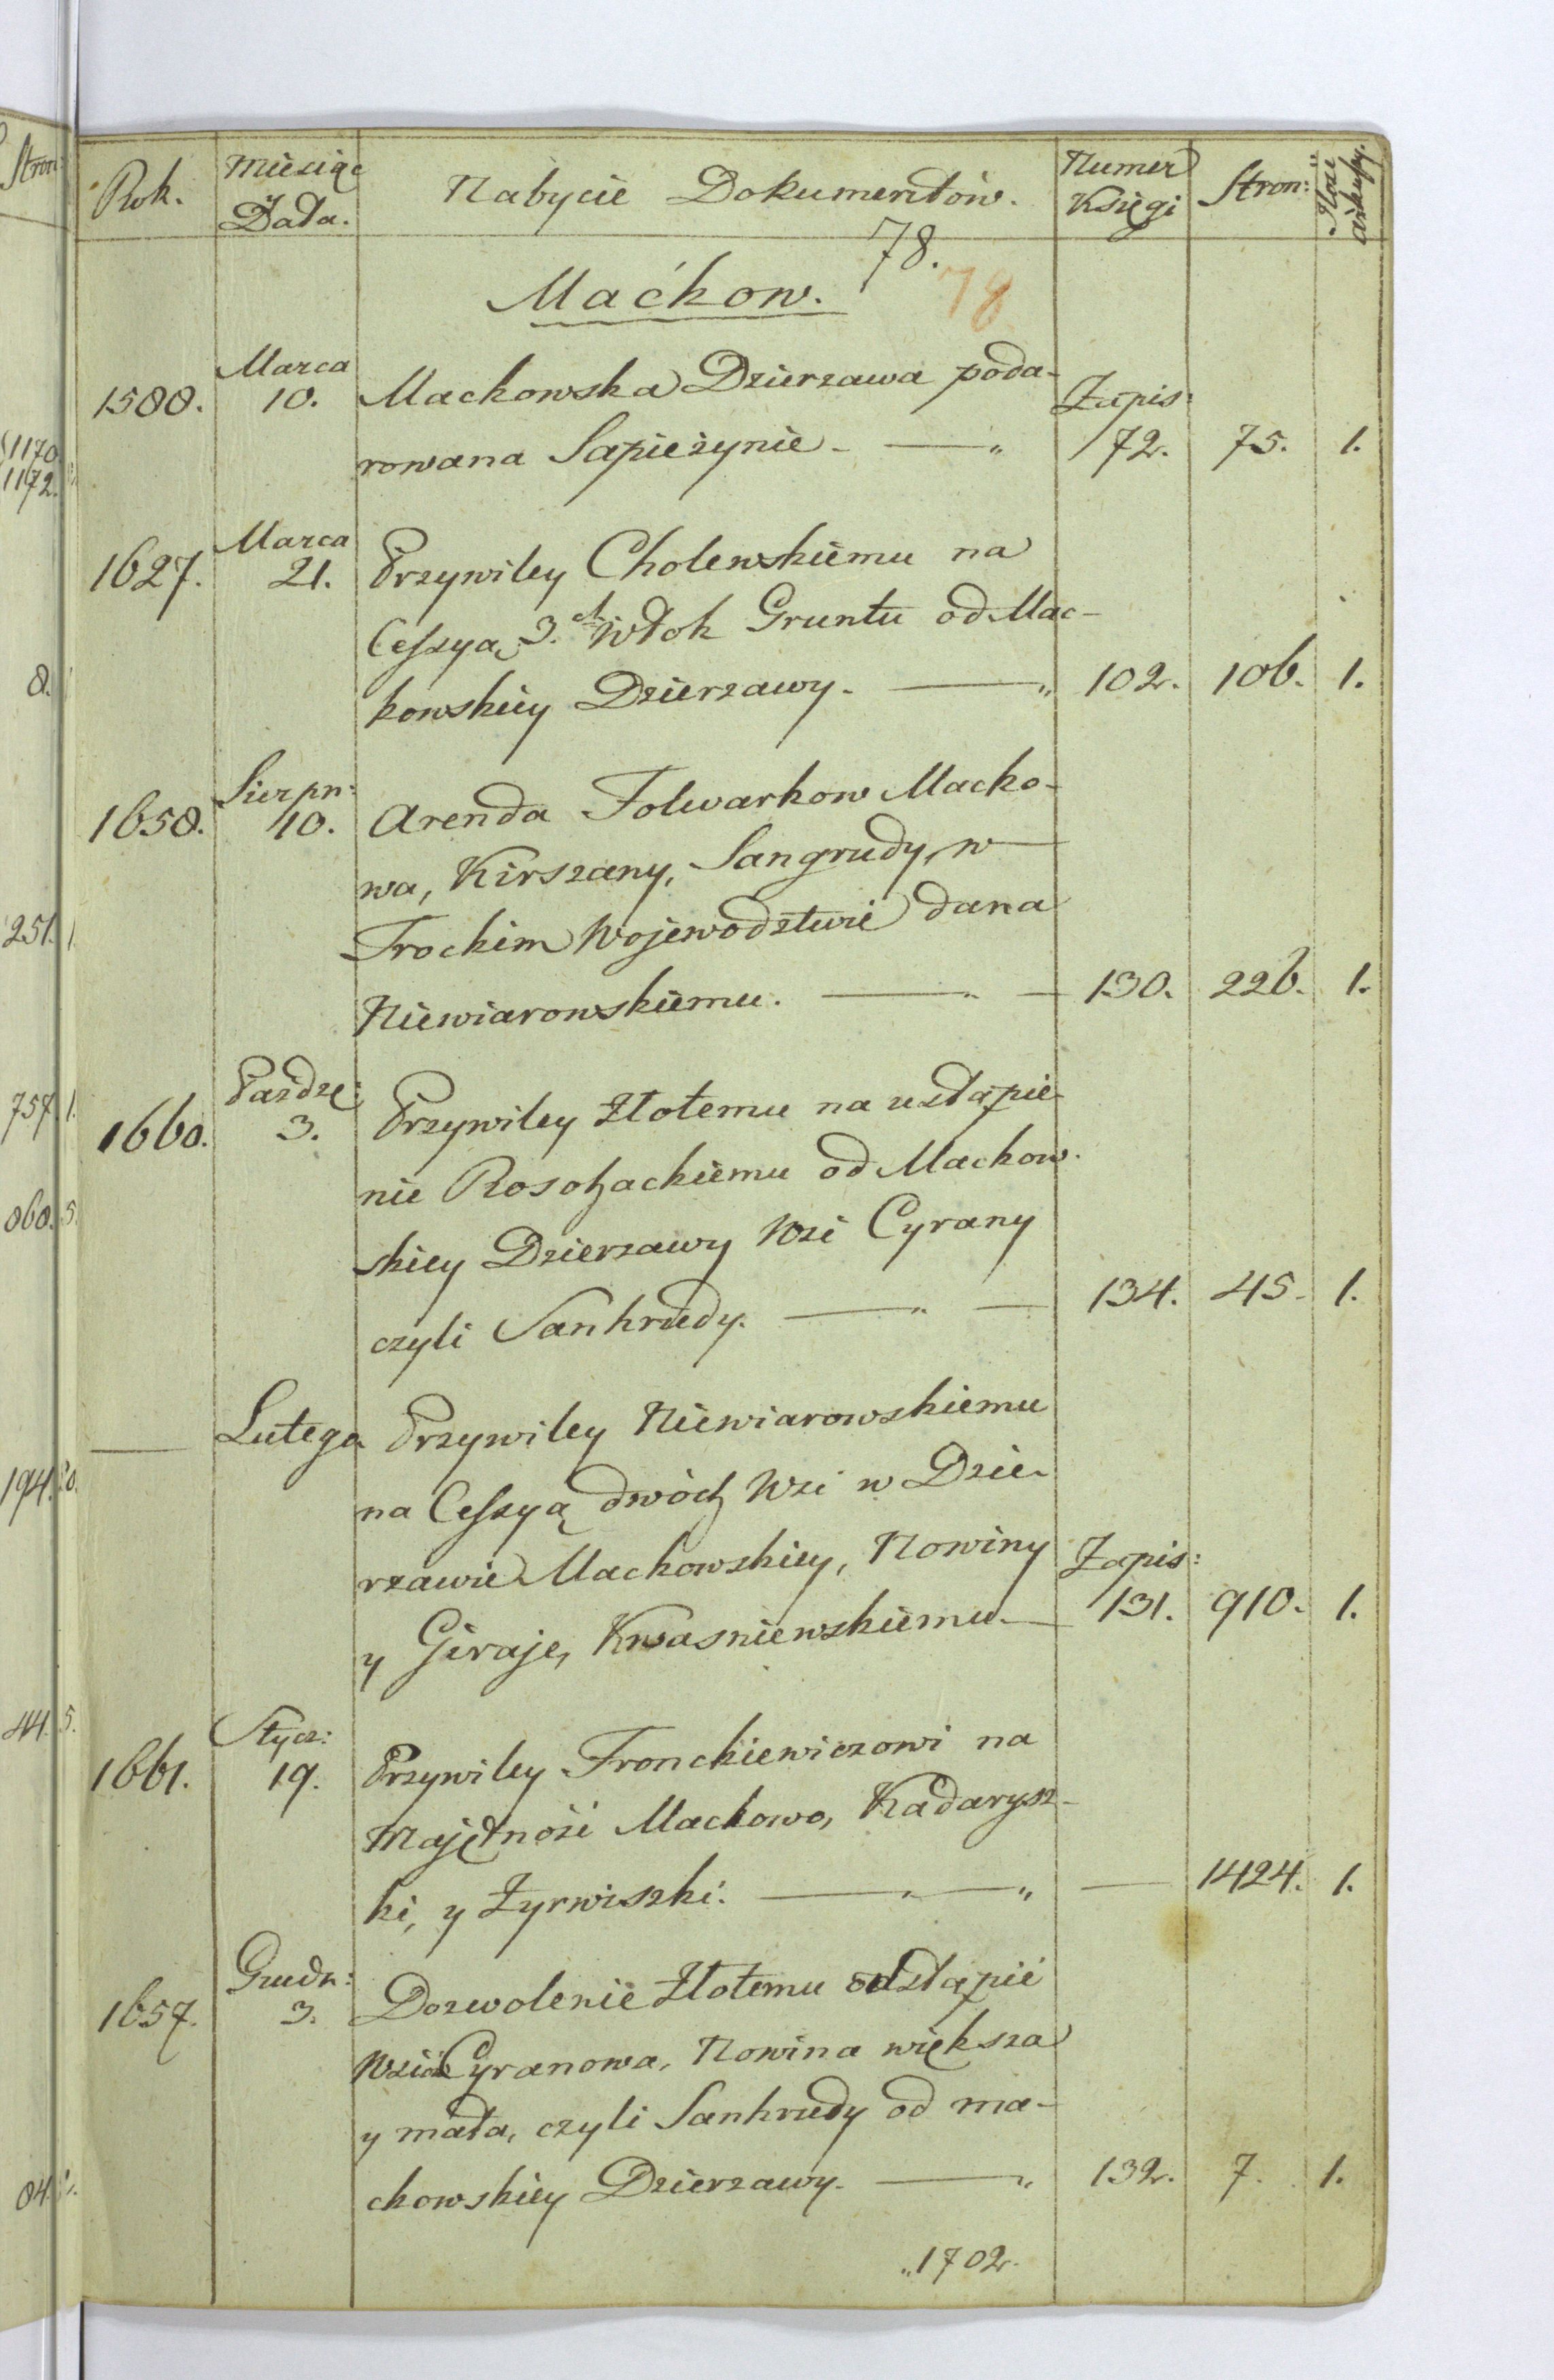 Rok. Miesiąc Data. Nabycie Dokumentów. Numer Księgi Stron: Ilość arkuszy.
78.
Maćkow. 78
1588. Marca 10. Mackowska Dzierzawa poda- Zapis:
rowana Sapieżynie. — „ 72. 75. 1.
1627. Marca 21. Przywiley Cholewskiemu na
Cessyą 3.ch Włok Gruntu od Mac-
kowskiey Dzierzawy. — „ 102. 106. 1.
1658. Sierpn: 10. Arenda Folwarkow Macko-
wa, Kirszany, Sangrudy, w
Trockim Wojewodztwie dana
Niewiarowskiemu. — „ — 130. 226. 1.
1660. Paźdze: 3. Przywiley Złotemu na ustąpie-
nie Rosochackiemu od Mackow-
skiey Dzierzawy Wsi Cyrany
czyli Sankrudy. — „ — 134. 45. 1.
— Lutego Przywiley Niewiarowskiemu
na Cessyą dwóch Wsi w Dzie-
rzawie Mackowskiey, Nowiny Zapis:
y Giraje, Kwasniewskiemu. — 131. 910. 1.
1661. Stycz: 19. Przywiley Fronckiewiczowi na
Majętnośi Mackowo, Kadarysz-
ki, y Żyrwiszki. — „ — „ — 1424. 1.
1657. Grudn: 3. Dozwolenie Złotemu odstąpić
Wsiów Cyranowa, Nowina większa
y mała, czyli Sankrudy od ma-
ckowskiey Dzierzawy. — „ 132. 7. 1.
„1702.